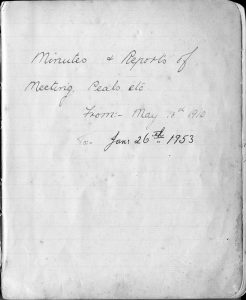 Minutes & Reports of
Meeting, Peals, etc
From - May 1910
To - Jan: 26th 1953